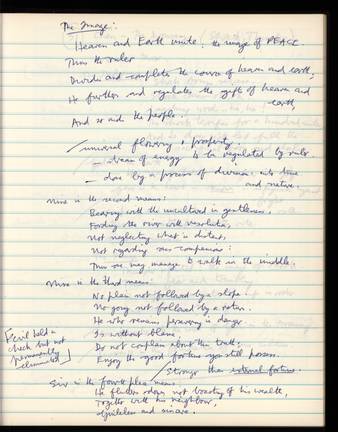 The Image:
Heaven and Earth unite: the image of PEACE.
Thus the ruler
Divides and completes the course of heaven and earth,
He furthers and regulates the gifts of heaven and
earth,
And so aids the people.
universal flowering & prosperity
– stream of energy to be regulated by ruler
– done by a process of division, into time
and nature.
Nine in the second means:
Bearing with the uncultured in gentleness,
Fording the river with resolution,
Not neglecting what is distant,
Not regarding one's companions:
Thus one may manage to walk in the middle.
Nine in the third means:
No plain not followed by a slope.
No going not followed by a return.
He who remains persevering in danger
Is without blame.
Do not complain about this truth;
Enjoy the good fortune you still possess.
[Evil held in
check but not
permanently
eliminated]
Stronger than external fortune.
Six in the fourth place means:
He flutters down, not boasting of his wealth,
Together with his neighbour,
Guileless and sincere.